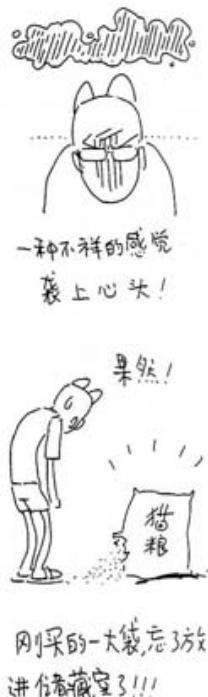 一种不祥的感觉
袭上心头!
果然!
猫
粮
刚买的一大袋,忘了放
进储藏室了!!!